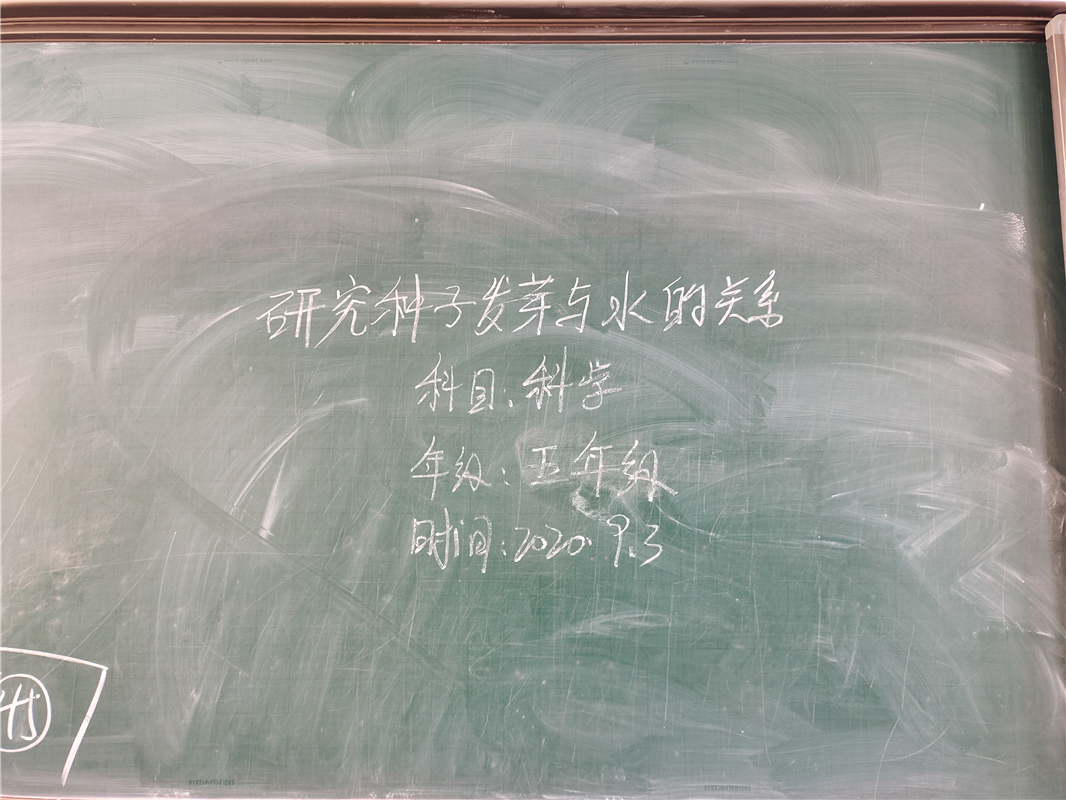 研究种子发芽与水的关系
科目:科学
年级:五年级
时间:2020.9.3